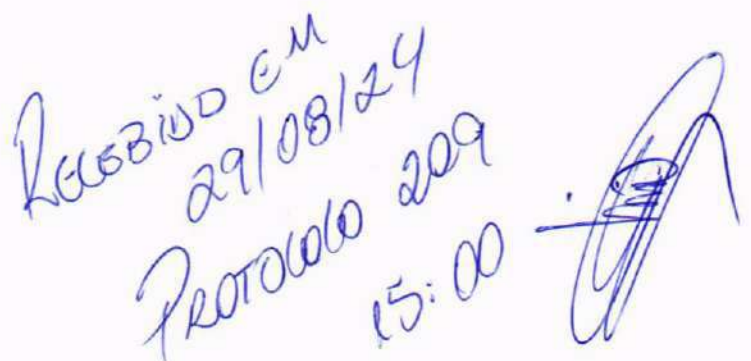 RECEBIDO EM
29/08/24
PROTOCOLO 209
15:00